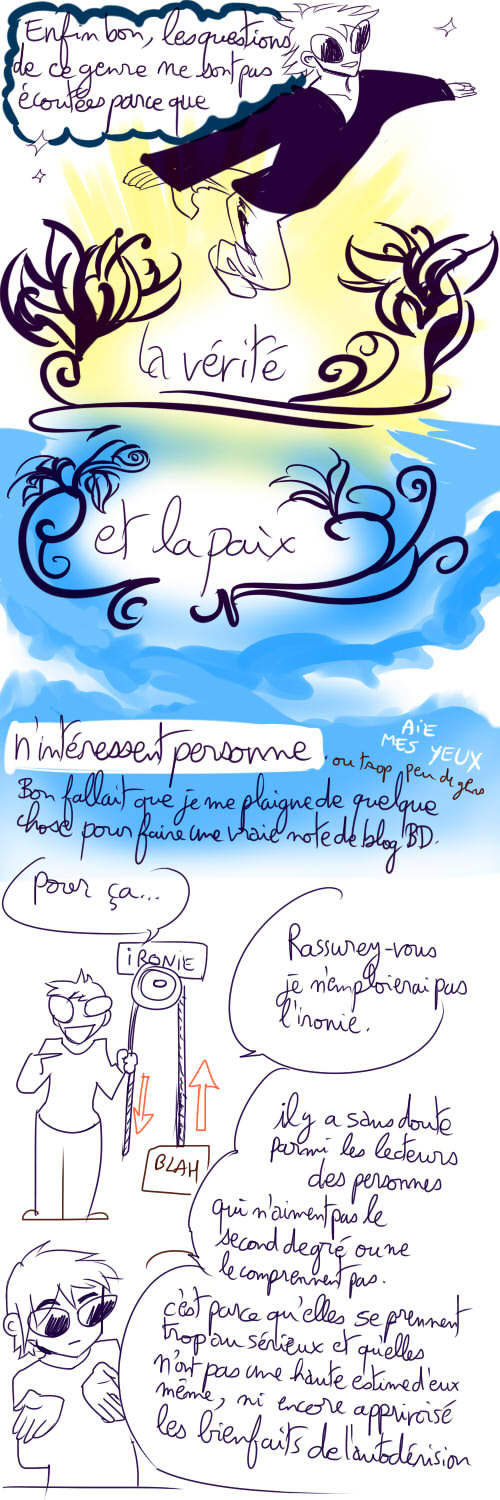 Enfin bon, les questions
de ce genre ne sont pas
écoutées parce que
la vérité
et la paix
n'intéressent personne.
ou trop peu de gens
AÏE
MES YEUX
Bon fallait que je me plaigne de quelque
chose pour faire une vraie note de blog BD.
Pour ça...
iRONIE
BLAH
Rassurez-vous
je n'emploierai pas
l'ironie.
il y a sans doute
parmi les lecteurs
des personnes
qui n'aiment pas le
second degré ou ne
le comprennent pas.
c'est parce qu'elles se prennent
trop au sérieux et qu'elles
n'ont pas une haute estime d'eux
même, ni encore apprivoisé
les bienfaits de l'autodérision